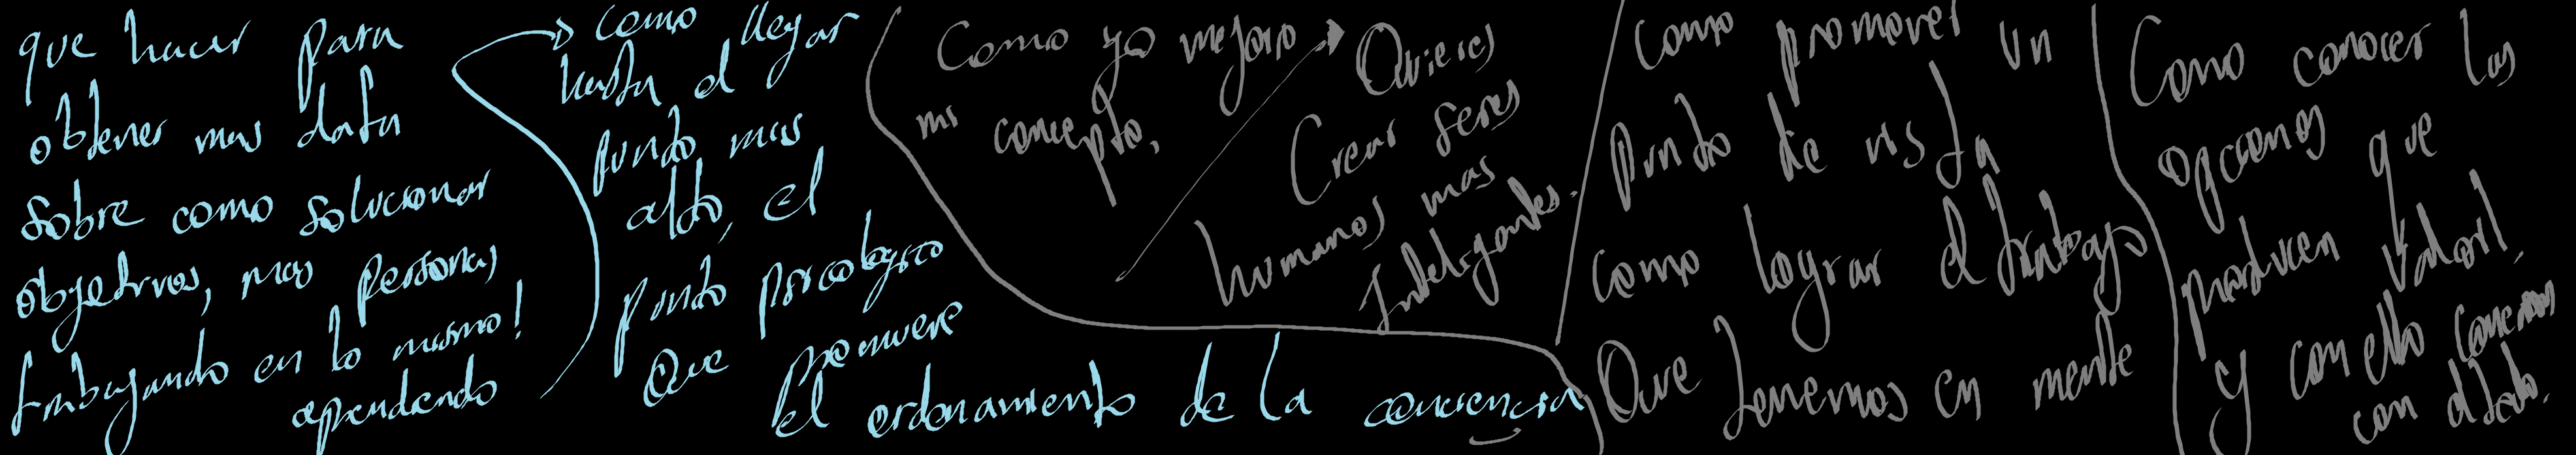 que hacer para
obtener mas data
sobre como solucionar
objetivos, mas personas
trabajando en lo mismo!
aprendiendo
como llegar
hasta el
punto mas
alto, el
punto psicologico
Que promueve
el ordenamiento de la conciencia
Como yo mejoro
mi concepto.
Quieres
Crear seres
humanos mas
Inteligentes.
Como promover un
punto de vista
como lograr el trabajo
Que tenemos en mente
Como conocer las
opciones que
producen valor!,
y con ello
con